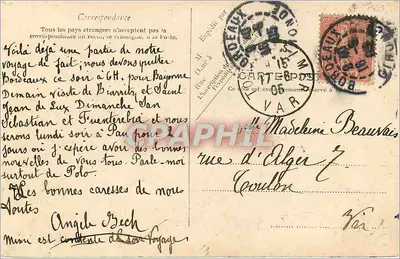 Correspondance
Tous les pays étrangers n'acceptent pas la
correspondance au recto, se renseigner à la Poste.
Voilà déjà une partie de notre
voyage de fait; nous devons quitter
Bordeaux ce soir à 6H. pour Bayonne
Demain visite de Biarritz et Saint
Jean de Luz Dimanche San
Sebastian et Fuentérabia et nous
serons lundi soir à Pau pour
jours où j'espère avoir des bonnes
nouvelles de vous tous. Parle-moi
surtout de Polo.
Les bonnes caresses de nous
toutes
Angèle Bech
Mimi est contente de son voyage
BORDEAUX
GIRONDE
TOULON S MER
17-6
05
VAR
BORDEAUX
GIRONDE
CARTE POSTALE
Mlle Madeleine Beauvais
rue d'Alger 7
Toulon
Var
CARTEPHILIA